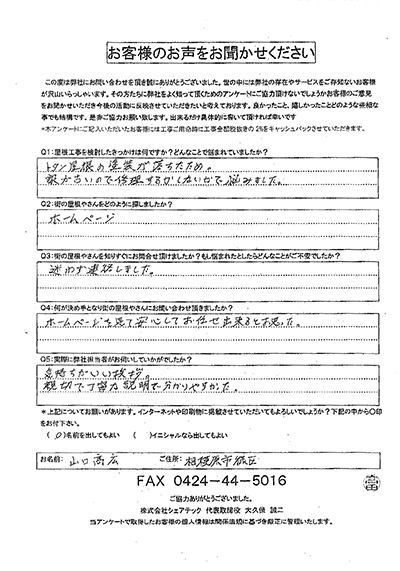 お客様のお声をお聞かせください
この度は弊社にお問い合わせを頂き誠にありがとうございました。世の中には弊社の存在やサービスをご存知ないお客様
が沢山いらっしゃいます。その方たちに弊社をよく知って頂くためのアンケートにご協力頂けないでしょうかお客様のご意見
をお聞かせいただき今後の活動に反映させていただきたいと考えております。良かったこと、嬉しかったことどのような些細な
事でも結構です。是非ご協力お願い致します。出来るだけ具体的に書いて頂ければ幸いです
*本アンケートにご記入いただいたお客様には工事ご用命時に工事金額税抜きの2%をキャッシュバックさせていただきます。
Q1:屋根工事を検討したきっかけは何ですか?どんなことで悩まれていましたか?
トタン屋根の塗装が落ちたため。
家が古いので修理するかしないかで悩みました。
Q2:街の屋根やさんをどのように探しましたか?
ホームページ
Q3:街の屋根やさんを知りすぐにお問合せ頂けましたか?もし悩まれたとしたらどんなことがご不安でしたか?
迷わず連絡しました。
Q4:何が決め手となり街の屋根やさんにお問い合わせ頂きましたか?
ホームページを見て安心してお任せ出来ると思った。
Q5:実際に弊社担当者がお伺いしていかがでしたか?
気持ちがいい挨拶。
親切で丁寧な説明で分かりやすかった。
*上記についてお願いがあります。インターネットや印刷物に掲載させていただいてもよろしいでしょうか?下記の中から〇印
をお付下さい。
(〇)名前を出してもよい ( )イニシャルなら出してもよい
お名前: 山口 ご住所: 相模原市緑区
FAX 0424-44-5016
ご協力ありがとうございました。
株式会社シェアテック 代表取締役 大久保 誠二
当アンケートで取得したお客様の個人情報は関係法規に基づき厳正に管理いたします。